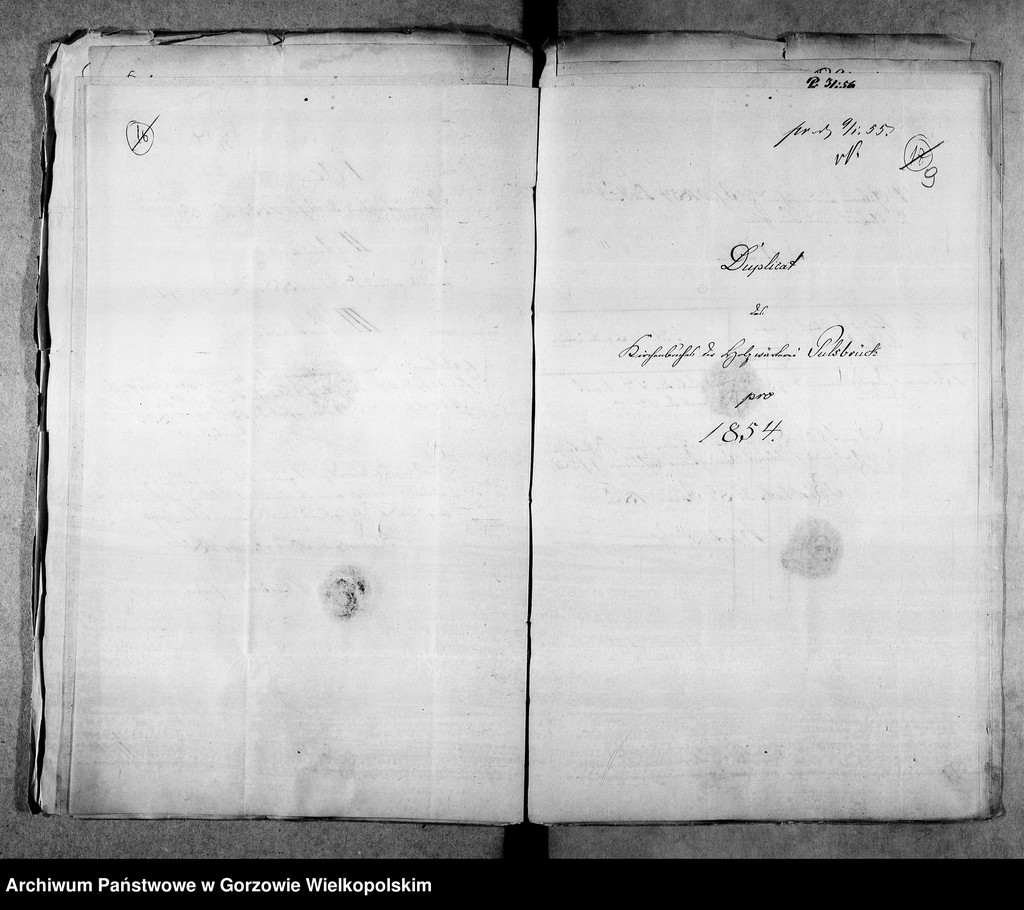 16
P. 31. 56
9/1. 55.
9
Duplicat
des
Kirchenbuches der Holzwärterei Pulsbrück
pro
1854.
Archiwum Państwowe w Gorzowie Wielkopolskim